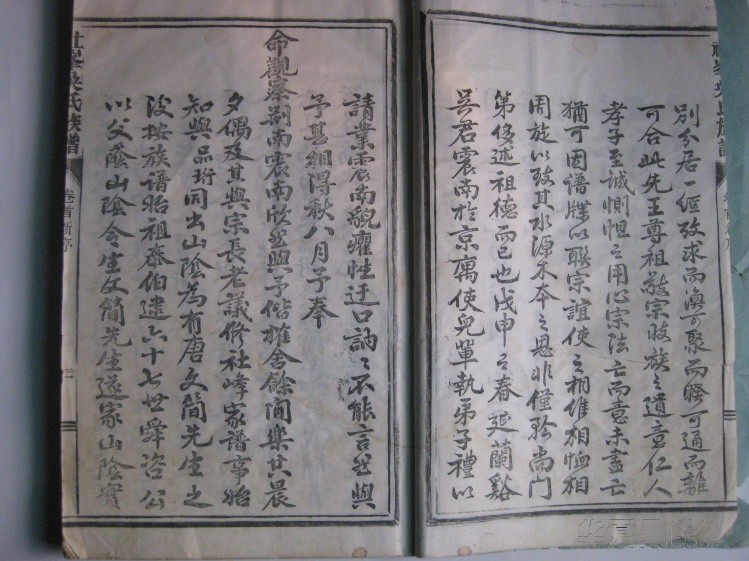 別分居一經考求而渙可聚而睽可通而離
可合此先王尊祖敬宗收族之遺意仁人
孝子至誠惻怛之用心宗法亡而意未盡亡
猶可因譜牒以聯宗誼使之相維相恤相
周旋以致其水源木本之思非僅矜尚門
第侈述祖德而已也戊申之春延蘭谿
吳君震南於京寓使兒輩執弟子禮以
請業震南貌癯性迂口訥訥不能言然與
予甚細得秋八月予奉
命觀察荆南震南欣然與予偕搉舍餘閒樂共晨
夕偶及其與宗長老議修社峰家譜事始
知與品珩同出山陰為有唐文簡先生之
後按族譜始祖泰伯逮六十七世舜咨公
以父蔭山陰令生文簡先生遂家山陰實
社峯吳氏族譜
卷首新序